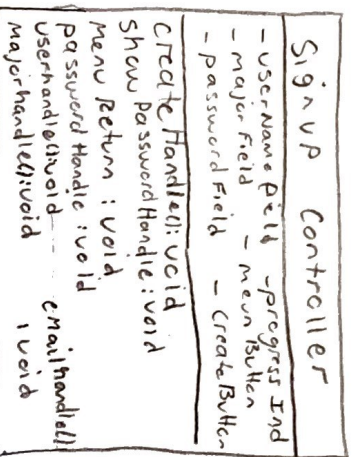 Signup Controller
- userName field - progress Ind
- major field - menu Button
- password Field - Create Button
Create Handle(): void
Show Password Handle: void
Menu Return : void
password Handle : void
userhandle(): void emailhandle():
majorhandle(): void : void